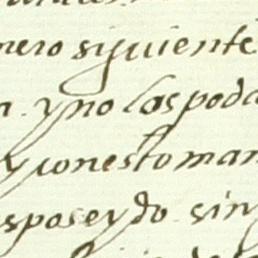 nero siguiente
n. y no las poda
y con esto man
sposeydo sin